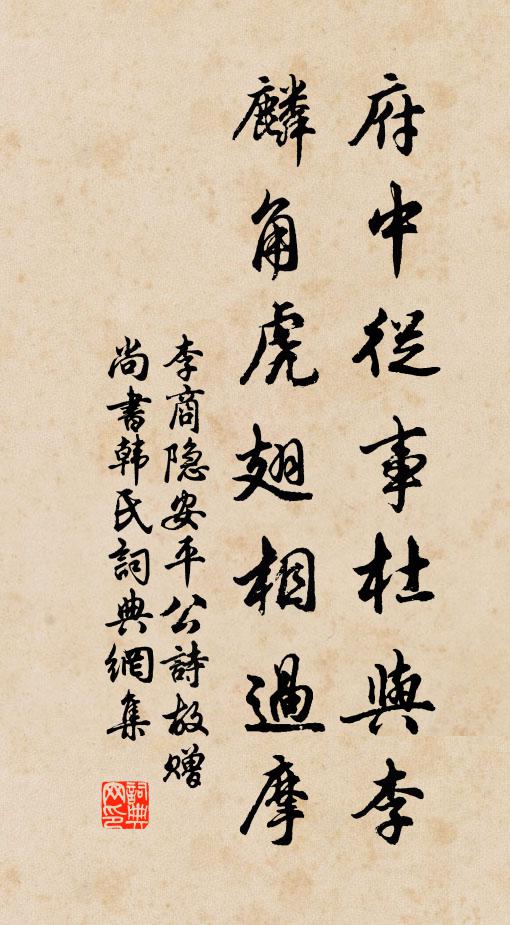 府中從事杜與李
麟角虎翅相過摩
李商隐安平公詩故赠
尚書韩氏詞典網集
詞典网印